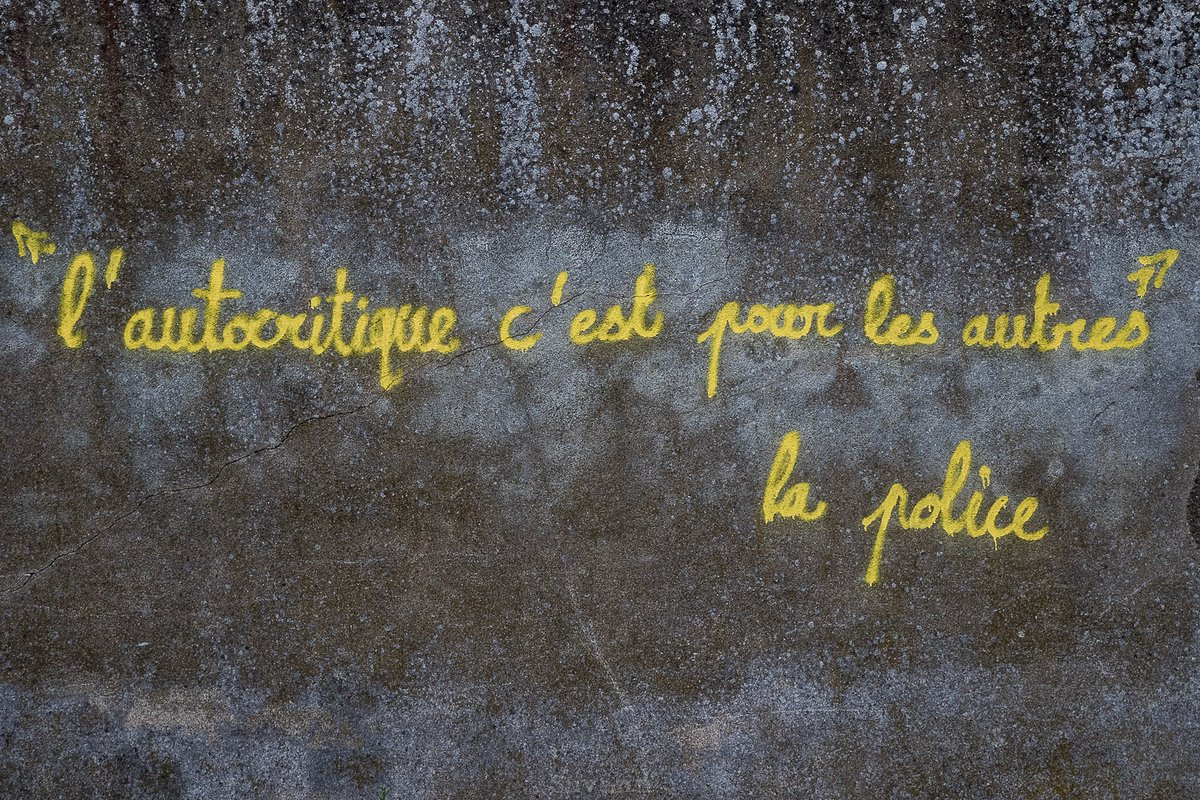 "l'autocritique c'est pour les autres"
la police